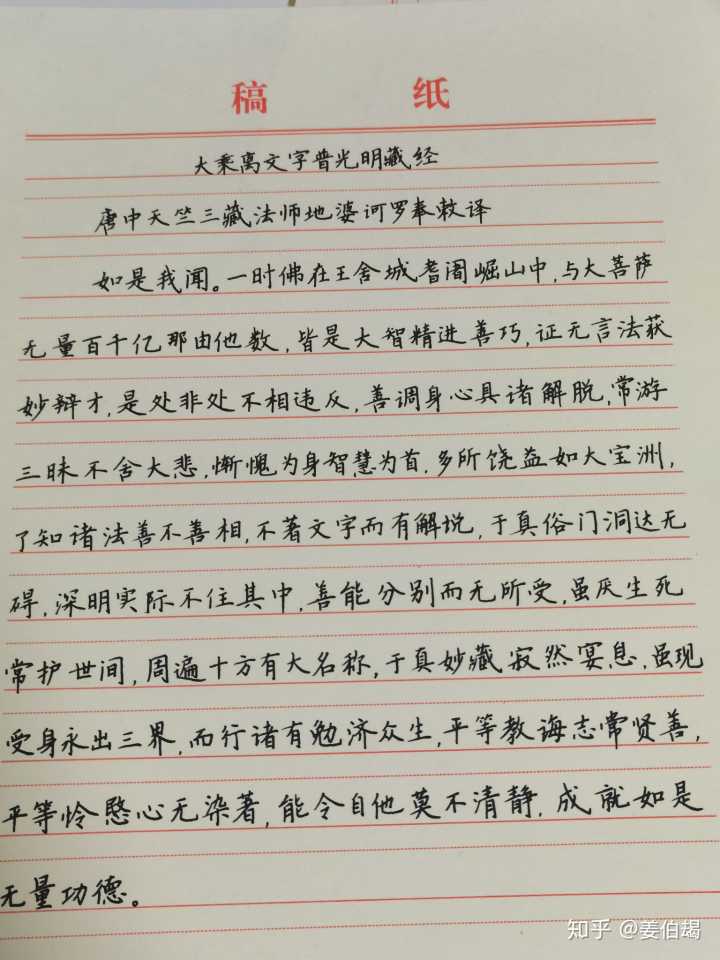 稿 纸
大乘离文字普光明藏经
唐中天竺三藏法师地婆诃罗奉敕译
如是我闻。一时佛在王舍城耆阇崛山中,与大菩萨
无量百千亿那由他数,皆是大智精进善巧,证无言法获
妙辩才,是处非处不相违反,善调身心具诸解脱,常游
三昧不舍大悲,惭愧为身智慧为首,多所饶益如大宝洲,
了知诸法善不善相,不著文字而有解说,于真俗门洞达无
碍,深明实际不住其中,善能分别而无所受,虽厌生死
常护世间,周遍十方有大名称,于真妙藏寂然宴息,虽现
受身永出三界,而行诸有勉济众生,平等教诲志常贤善,
平等怜愍心无染著,能令自他莫不清静,成就如是
无量功德。
知乎 @姜伯朅